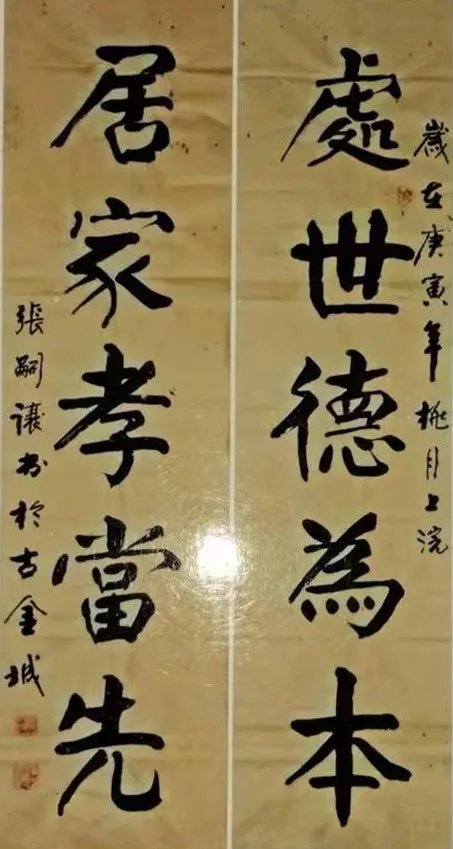 歲在庚寅年桃月上浣
處世德為本
居家孝當先
張嗣讓書於古金城